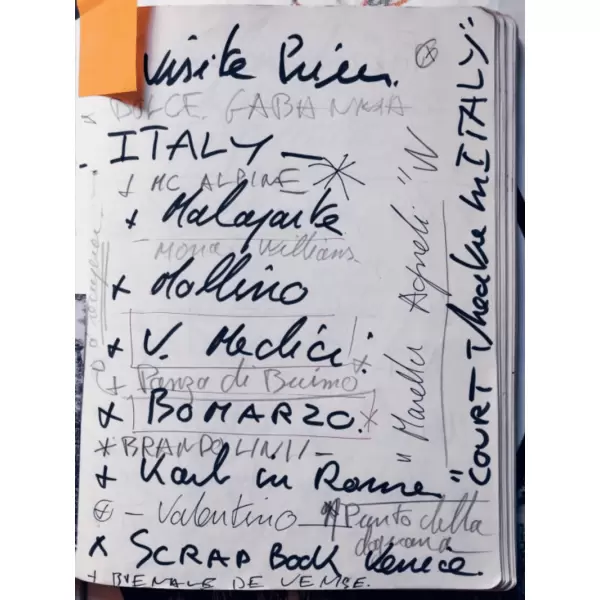 Visite Privée.
x DOLCE. GABANNA
- ITALY —
+ MC ALPINE
x Malaparte
Mona Williams
x Mollino
x V. Medici.
+ Panza di Buimo
x BOMARZO.
* BRANDOLINII -
+ Karl in Rome
- Valentino
Punto della dogana
x SCRAP BOOK Venice.
+ BIENALE DE VENISE.
"Marella Agneli" W
"COURT Theatre in ITALY"